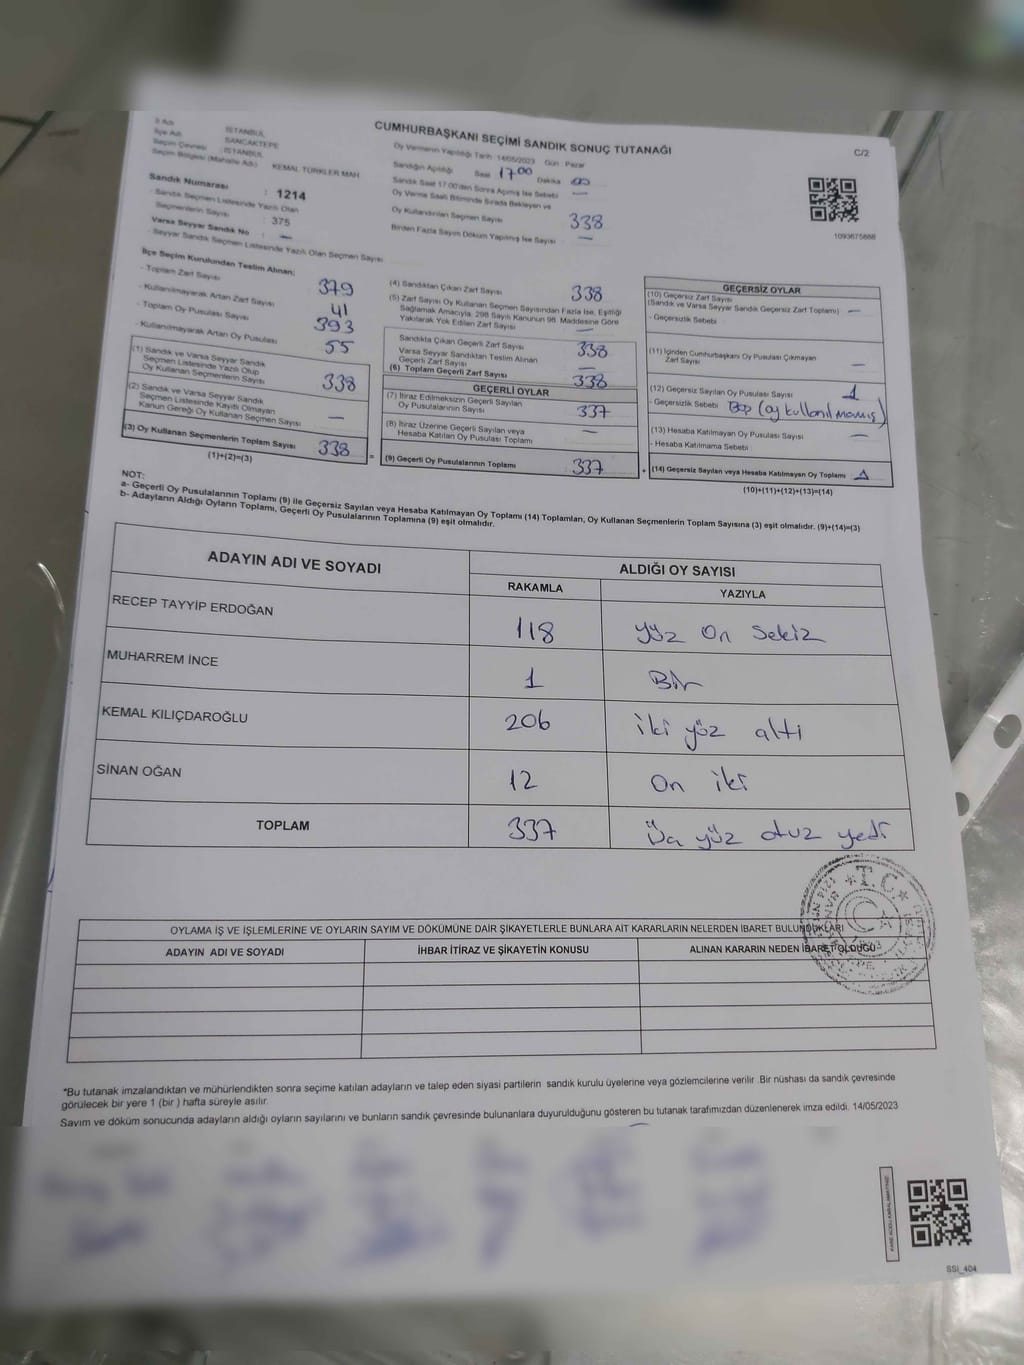 CUMHURBAŞKANI SEÇİMİ SANDIK SONUÇ TUTANAĞI
C/2
İl Adı : İSTANBUL
İlçe Adı : SANCAKTEPE
Seçim Çevresi : İSTANBUL
Seçim Bölgesi (Mahalle Adı) : KEMAL TÜRKLER MAH
Sandık Numarası : 1214
- Sandık Seçmen Listesinde Yazılı Olan
Seçmenlerin Sayısı : 375
Varsa Seyyar Sandık No : —
- Seyyar Sandık Seçmen Listesinde Yazılı Olan Seçmen Sayısı
Oy Vermenin Yapıldığı Tarih : 14/05/2023 Gün : Pazar
Sandığın Açıldığı Saat 17 00 Dakika 00
Sandık Saat 17:00'den Sonra Açılmış İse Sebebi —
Oy Verme Saati Bitiminde Sırada Bekleyen ve
Oy Kullandırılan Seçmen Sayısı 338
Birden Fazla Sayım Döküm Yapılmış İse Sayısı —
1093675888
İlçe Seçim Kurulundan Teslim Alınan;
- Toplam Zarf Sayısı 379
- Kullanılmayarak Artan Zarf Sayısı 41
- Toplam Oy Pusulası Sayısı 393
- Kullanılmayarak Artan Oy Pusulası 55
(1) Sandık ve Varsa Seyyar Sandık
Seçmen Listesinde Yazılı Olup
Oy Kullanan Seçmenlerin Sayısı 338
(2) Sandık ve Varsa Seyyar Sandık
Seçmen Listesinde Kayıtlı Olmayan
Kanun Gereği Oy Kullanan Seçmen Sayısı —
(3) Oy Kullanan Seçmenlerin Toplam Sayısı 338
(1)+(2)=(3)
(4) Sandıktan Çıkan Zarf Sayısı 338
(5) Zarf Sayısı Oy Kullanan Seçmen Sayısından Fazla İse, Eşitliği
Sağlamak Amacıyla, 298 Sayılı Kanunun 98. Maddesine Göre
Yakılarak Yok Edilen Zarf Sayısı —
Sandıkta Çıkan Geçerli Zarf Sayısı 338
Varsa Seyyar Sandıktan Teslim Alınan
Geçerli Zarf Sayısı —
(6) Toplam Geçerli Zarf Sayısı 338
GEÇERLİ OYLAR
(7) İtiraz Edilmeksizin Geçerli Sayılan
Oy Pusulalarının Sayısı 337
(8) İtiraz Üzerine Geçerli Sayılan veya
Hesaba Katılan Oy Pusulası Toplamı —
= (9) Geçerli Oy Pusulalarının Toplamı 337
GEÇERSİZ OYLAR
(10) Geçersiz Zarf Sayısı
(Sandık ve Varsa Seyyar Sandık Geçersiz Zarf Toplamı) —
- Geçersizlik Sebebi :
(11) İçinden Cumhurbaşkanı Oy Pusulası Çıkmayan
Zarf Sayısı —
(12) Geçersiz Sayılan Oy Pusulası Sayısı 1
- Geçersizlik Sebebi : Boş (oy kullanılmamış)
(13) Hesaba Katılmayan Oy Pusulası Sayısı —
- Hesaba Katılmama Sebebi :
+ (14) Geçersiz Sayılan veya Hesaba Katılmayan Oy Toplamı : 1
(10)+(11)+(12)+(13)=(14)
NOT:
a- Geçerli Oy Pusulalarının Toplamı (9) ile Geçersiz Sayılan veya Hesaba Katılmayan Oy Toplamı (14) Toplamları, Oy Kullanan Seçmenlerin Toplam Sayısına (3) eşit olmalıdır. (9)+(14)=(3)
b- Adayların Aldığı Oyların Toplamı, Geçerli Oy Pusulalarının Toplamına (9) eşit olmalıdır.
ADAYIN ADI VE SOYADI
ALDIĞI OY SAYISI
RAKAMLA YAZIYLA
RECEP TAYYİP ERDOĞAN 118 yüz On Sekiz
MUHARREM İNCE 1 Bir
KEMAL KILIÇDAROĞLU 206 iki yüz altı
SİNAN OĞAN 12 On iki
TOPLAM 337 Üç yüz otuz yedi
T.C
OYLAMA İŞ VE İŞLEMLERİNE VE OYLARIN SAYIM VE DÖKÜMÜNE DAİR ŞİKAYETLERLE BUNLARA AİT KARARLARIN NELERDEN İBARET BULUNDUKLARI
ADAYIN ADI VE SOYADI İHBAR İTİRAZ VE ŞİKAYETİN KONUSU ALINAN KARARIN NEDEN İBARET OLDUĞU
*Bu tutanak imzalandıktan ve mühürlendikten sonra seçime katılan adayların ve talep eden siyasi partilerin sandık kurulu üyelerine veya gözlemcilerine verilir .Bir nüshası da sandık çevresinde
görülecek bir yere 1 (bir ) hafta süreyle asılır.
Sayım ve döküm sonucunda adayların aldığı oyların sayılarını ve bunların sandık çevresinde bulunanlara duyurulduğunu gösteren bu tutanak tarafımızdan düzenlenerek imza edildi. 14/05/2023
KARE KODU KARALAMAYINIZ!
SSI_404